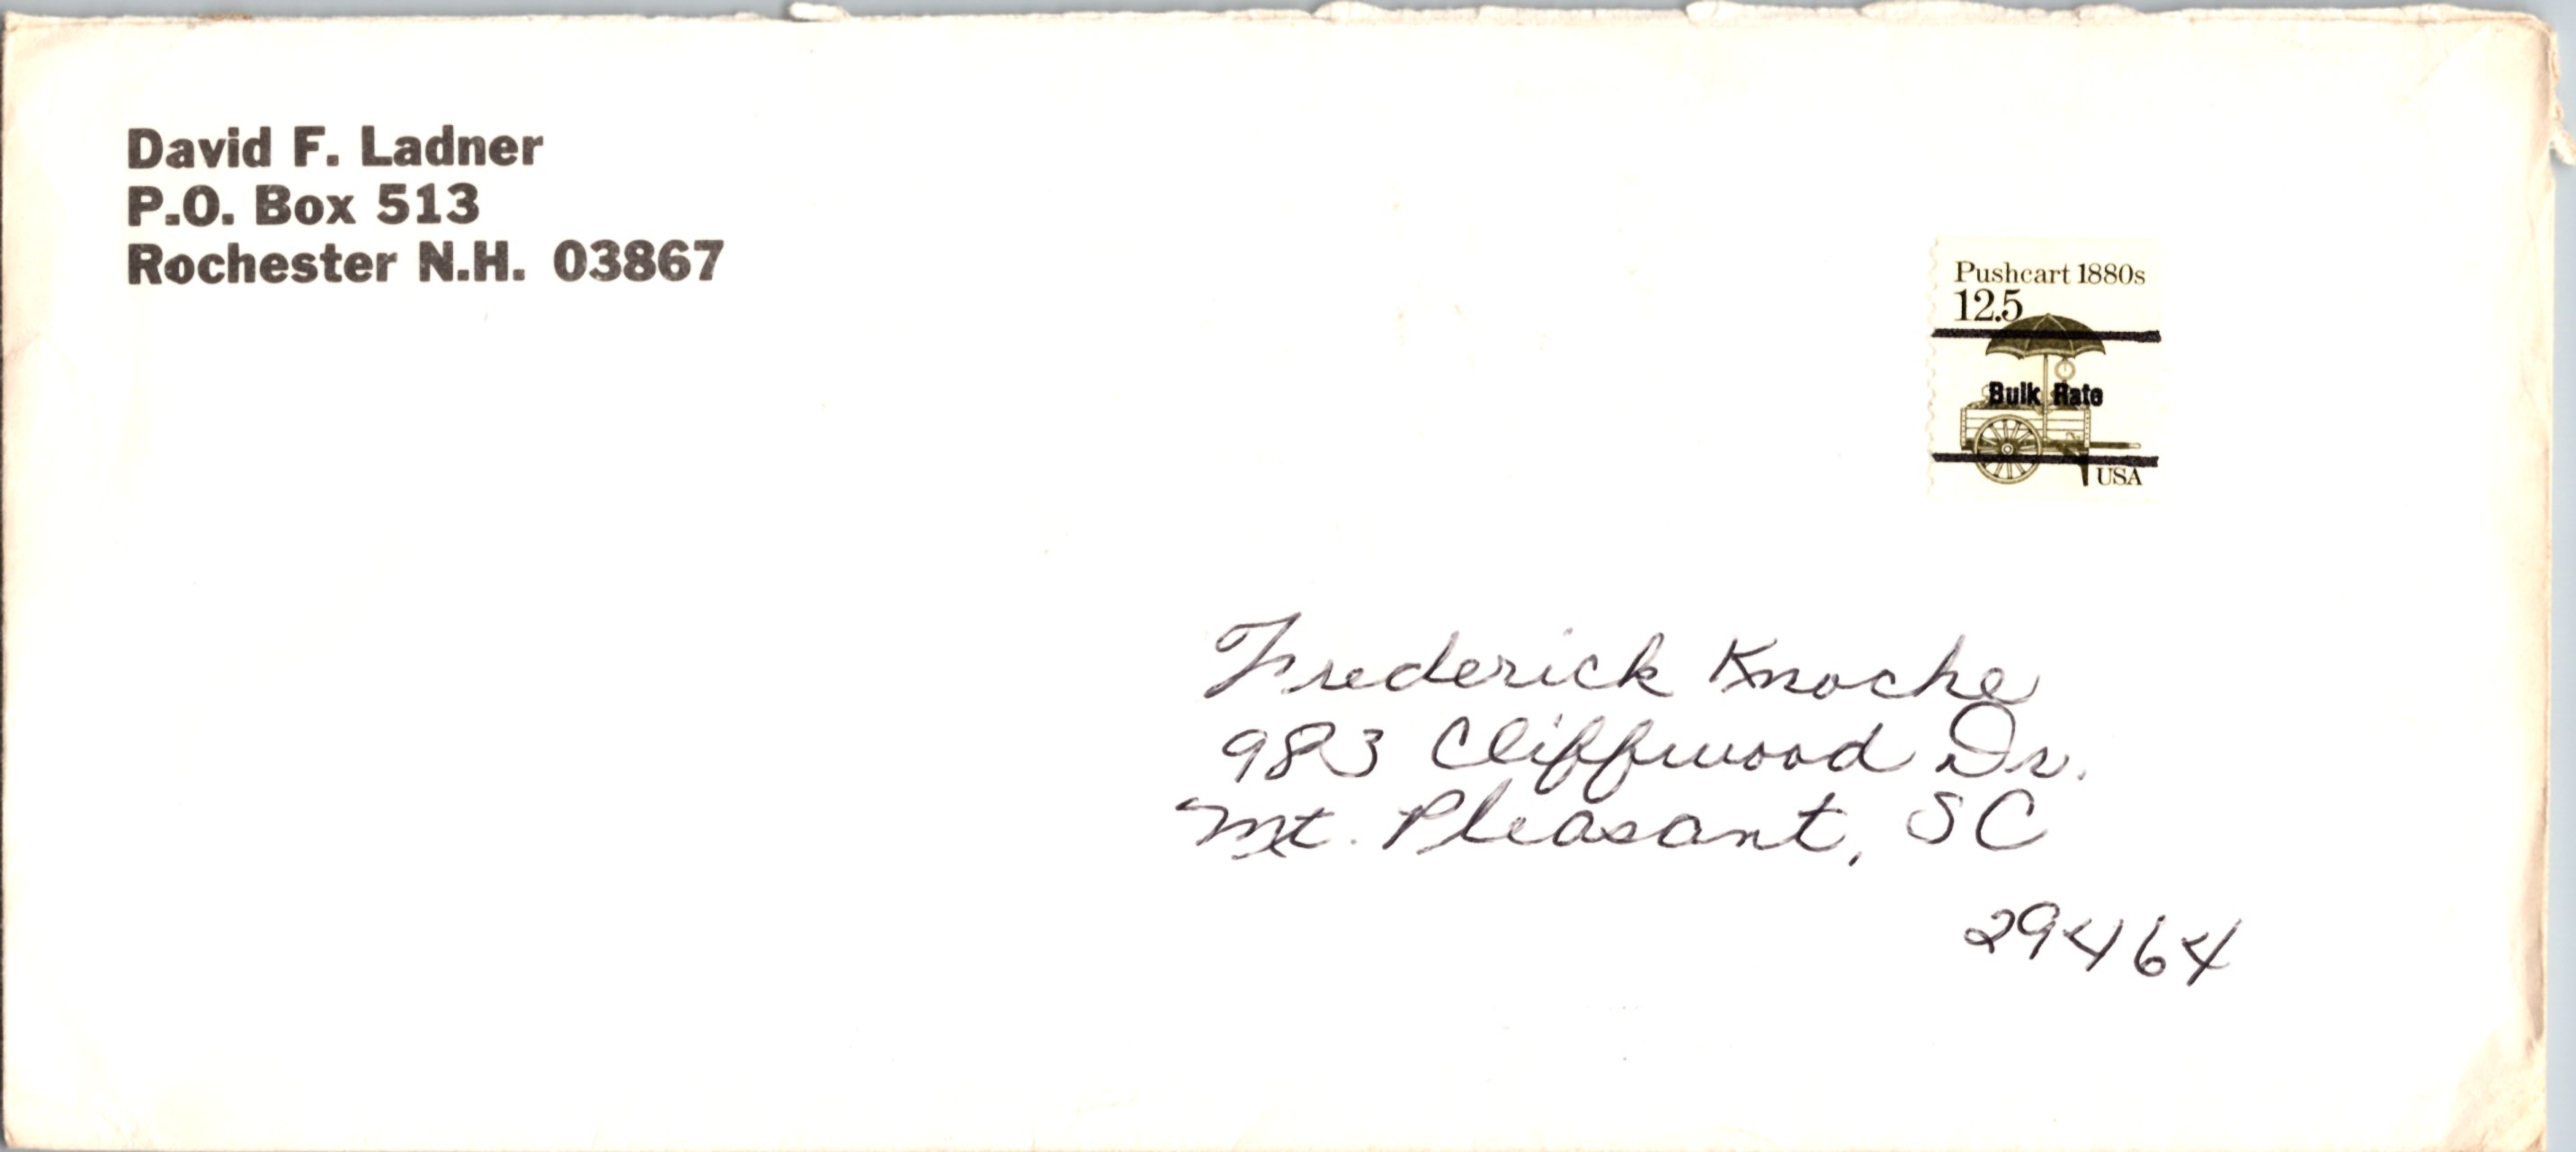 David F. Ladner
P.O. Box 513
Rochester N.H. 03867
Pushcart 1880s
12.5
Bulk Rate
USA
Frederick Knoche
983 Cliffwood Dr.
Mt. Pleasant, SC
29464